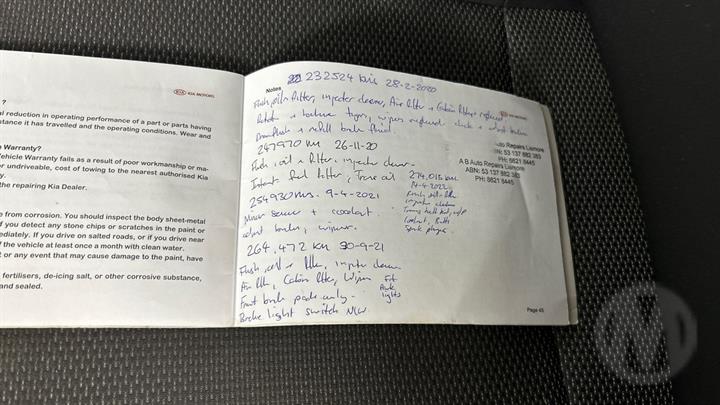 KIA MOTORS
?
al reduction in operating performance of a part or parts having
stance it has travelled and the operating conditions. Wear and
Warranty?
Vehicle Warranty fails as a result of poor workmanship or ma-
or undriveable, cost of towing to the nearest authorised Kia
y.
the repairing Kia Dealer.
e from corrosion. You should inspect the body sheet-metal
f you detect any stone chips or scratches in the paint or
ediately. If you drive on salted roads, or if you drive near
f the vehicle at least once a month with clean water.
t or any event that may cause damage to the paint, have
fertilisers, de-icing salt, or other corrosive substance,
and sealed.
232524 kms 28-2-2020
Notes
Flush, oil + filter, injector cleaner, Air filter + Cabin filter replaced
KIA MOTORS
Rotate + balance tyres, wipers replaced
Drain flush + refill brake fluid.
247970 km 26-11-20
Flush, oil + filter, injector cleaner
fuel filter, Trans oil
254930 kms. 9-4-2021
Minor service + coolant.
wipers.
264,472 Km 30-9-21
Flush, oil + filter, injector cleaner
Air filter, Cabin filter, Wipers
Front brake pads only -
Brake light switch
Fit
lights
274,018 km
injector cleaner
Timing belt kit, w/p
Coolant,
Spark plugs.
Auto Repairs Lismore
BN: 53 137 882 383
PH: 6621 8445
A B Auto Repairs Lismore
ABN: 53 137 882 383
PH: 6621 8445
Page 45
M